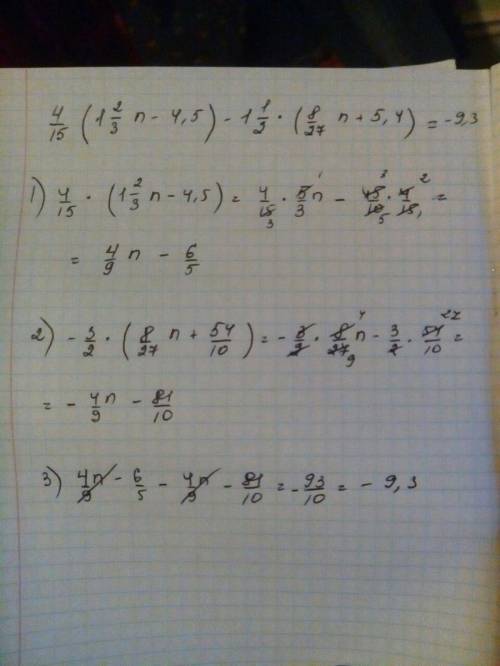 4/15 (1 2/3 n - 4,5) - 1 1/2 · (8/27 n + 5,4) = -9,3
1) 4/15 · (1 2/3 n - 4,5) = 4/15 3 · 5/3 n 1 - 45/10 3 5 · 4/15 2 1 =
= 4/9 n - 6/5
2) - 3/2 · (8/27 n + 54/10) = - 3/2 · 8/27 n 4 9 - 3/2 · 54/10 27 =
= - 4/9 n - 81/10
3) 4n/9 - 6/5 - 4n/9 - 81/10 = - 93/10 = - 9,3